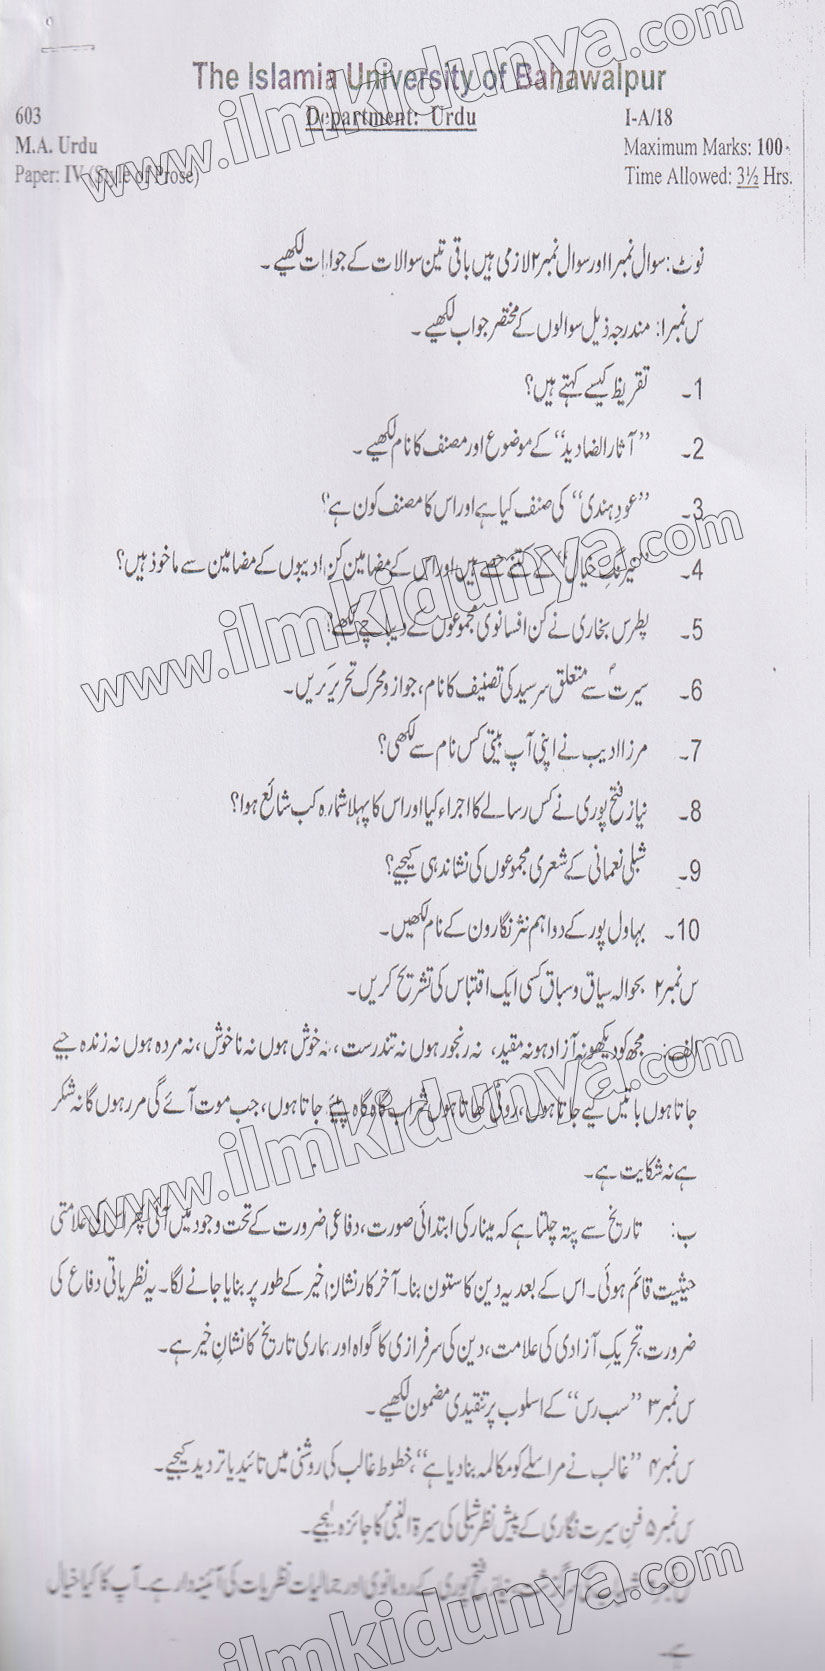 The Islamia University of Bahawalpur
603
Department: Urdu
I-A/18
M.A. Urdu
Maximum Marks: 100
Paper: IV (Style of Prose)
Time Allowed: 3½ Hrs.
نوٹ: سوال نمبر ۱ اور سوال نمبر ۲ لازمی ہیں باقی تین سوالات کے جوابات لکھیے۔
س نمبر ۱: مندرجہ ذیل سوالوں کے مختصر جواب لکھیے۔
1۔ تقریظ کیسے کہتے ہیں؟
2۔ ”آثار الضادید“ کے موضوع اور مصنف کا نام لکھیے۔
3۔ ”عود ہندی“ کی صنف کیا ہے اور اس کا مصنف کون ہے؟
4۔ ”نیرنگ خیال“ کے کتنے حصے ہیں اور اس کے مضامین کن ادیبوں کے مضامین سے ماخوذ ہیں؟
5۔ پطرس بخاری نے کن افسانوی مجموعوں کے دیباچے لکھے؟
6۔ سیرتؐ سے متعلق سرسید کی تصنیف کا نام، جواز و محرک تحریر کریں۔
7۔ مرزا ادیب نے اپنی آپ بیتی کس نام سے لکھی؟
8۔ نیاز فتح پوری نے کس رسالے کا اجراء کیا اور اس کا پہلا شمارہ کب شائع ہوا؟
9۔ شبلی نعمانی کے شعری مجموعوں کی نشاندہی کیجیے؟
10۔ بہاول پور کے دو اہم نثر نگارون کے نام لکھیں۔
س نمبر ۲ بحوالہ سیاق و سباق کسی ایک اقتباس کی تشریح کریں۔
الف: مجھ کو دیکھو نہ آزاد ہو نہ مقید، نہ رنجور ہوں نہ تندرست، نہ خوش ہوں نہ ناخوش، نہ مردہ ہوں نہ زندہ جیے
جاتا ہوں باتیں کیے جاتا ہوں، روٹی کھاتا ہوں شراب گاہ گاہ پیئے جاتا ہوں، جب موت آئے گی مر رہوں گا نہ شکر
ہے نہ شکایت ہے۔
ب: تاریخ سے پتہ چلتا ہے کہ مینار کی ابتدائی صورت، دفاعی ضرورت کے تحت وجود میں آئی پھر اس کی علامتی
حیثیت قائم ہوئی۔ اس کے بعد یہ دین کا ستون بنا۔ آخر کار نشان خیر کے طور پر بنایا جانے لگا۔ یہ نظریاتی دفاع کی
ضرورت، تحریکِ آزادی کی علامت، دین کی سرفرازی کا گواہ اور ہماری تاریخ کا نشانِ خیر ہے۔
س نمبر ۳ ”سب رس“ کے اسلوب پر تنقیدی مضمون لکھیے۔
س نمبر ۴ ”غالب نے مراسلے کو مکالمہ بنا دیا ہے“، خطوط غالب کی روشنی میں تائید یا تردید کیجیے۔
س نمبر ۵ فنِ سیرت نگاری کے پیش نظر شبلی کی سیرۃ النبیؐ کا جائزہ لیجیے۔
فتح پوری کے رومانوی اور جمالیات نظریات کی آئینہ دار ہے۔ آپ کا کیا خیال
ہے۔
www.ilmkidunya.com
www.ilmkidunya.com
www.ilmkidunya.com
www.ilmkidunya.com